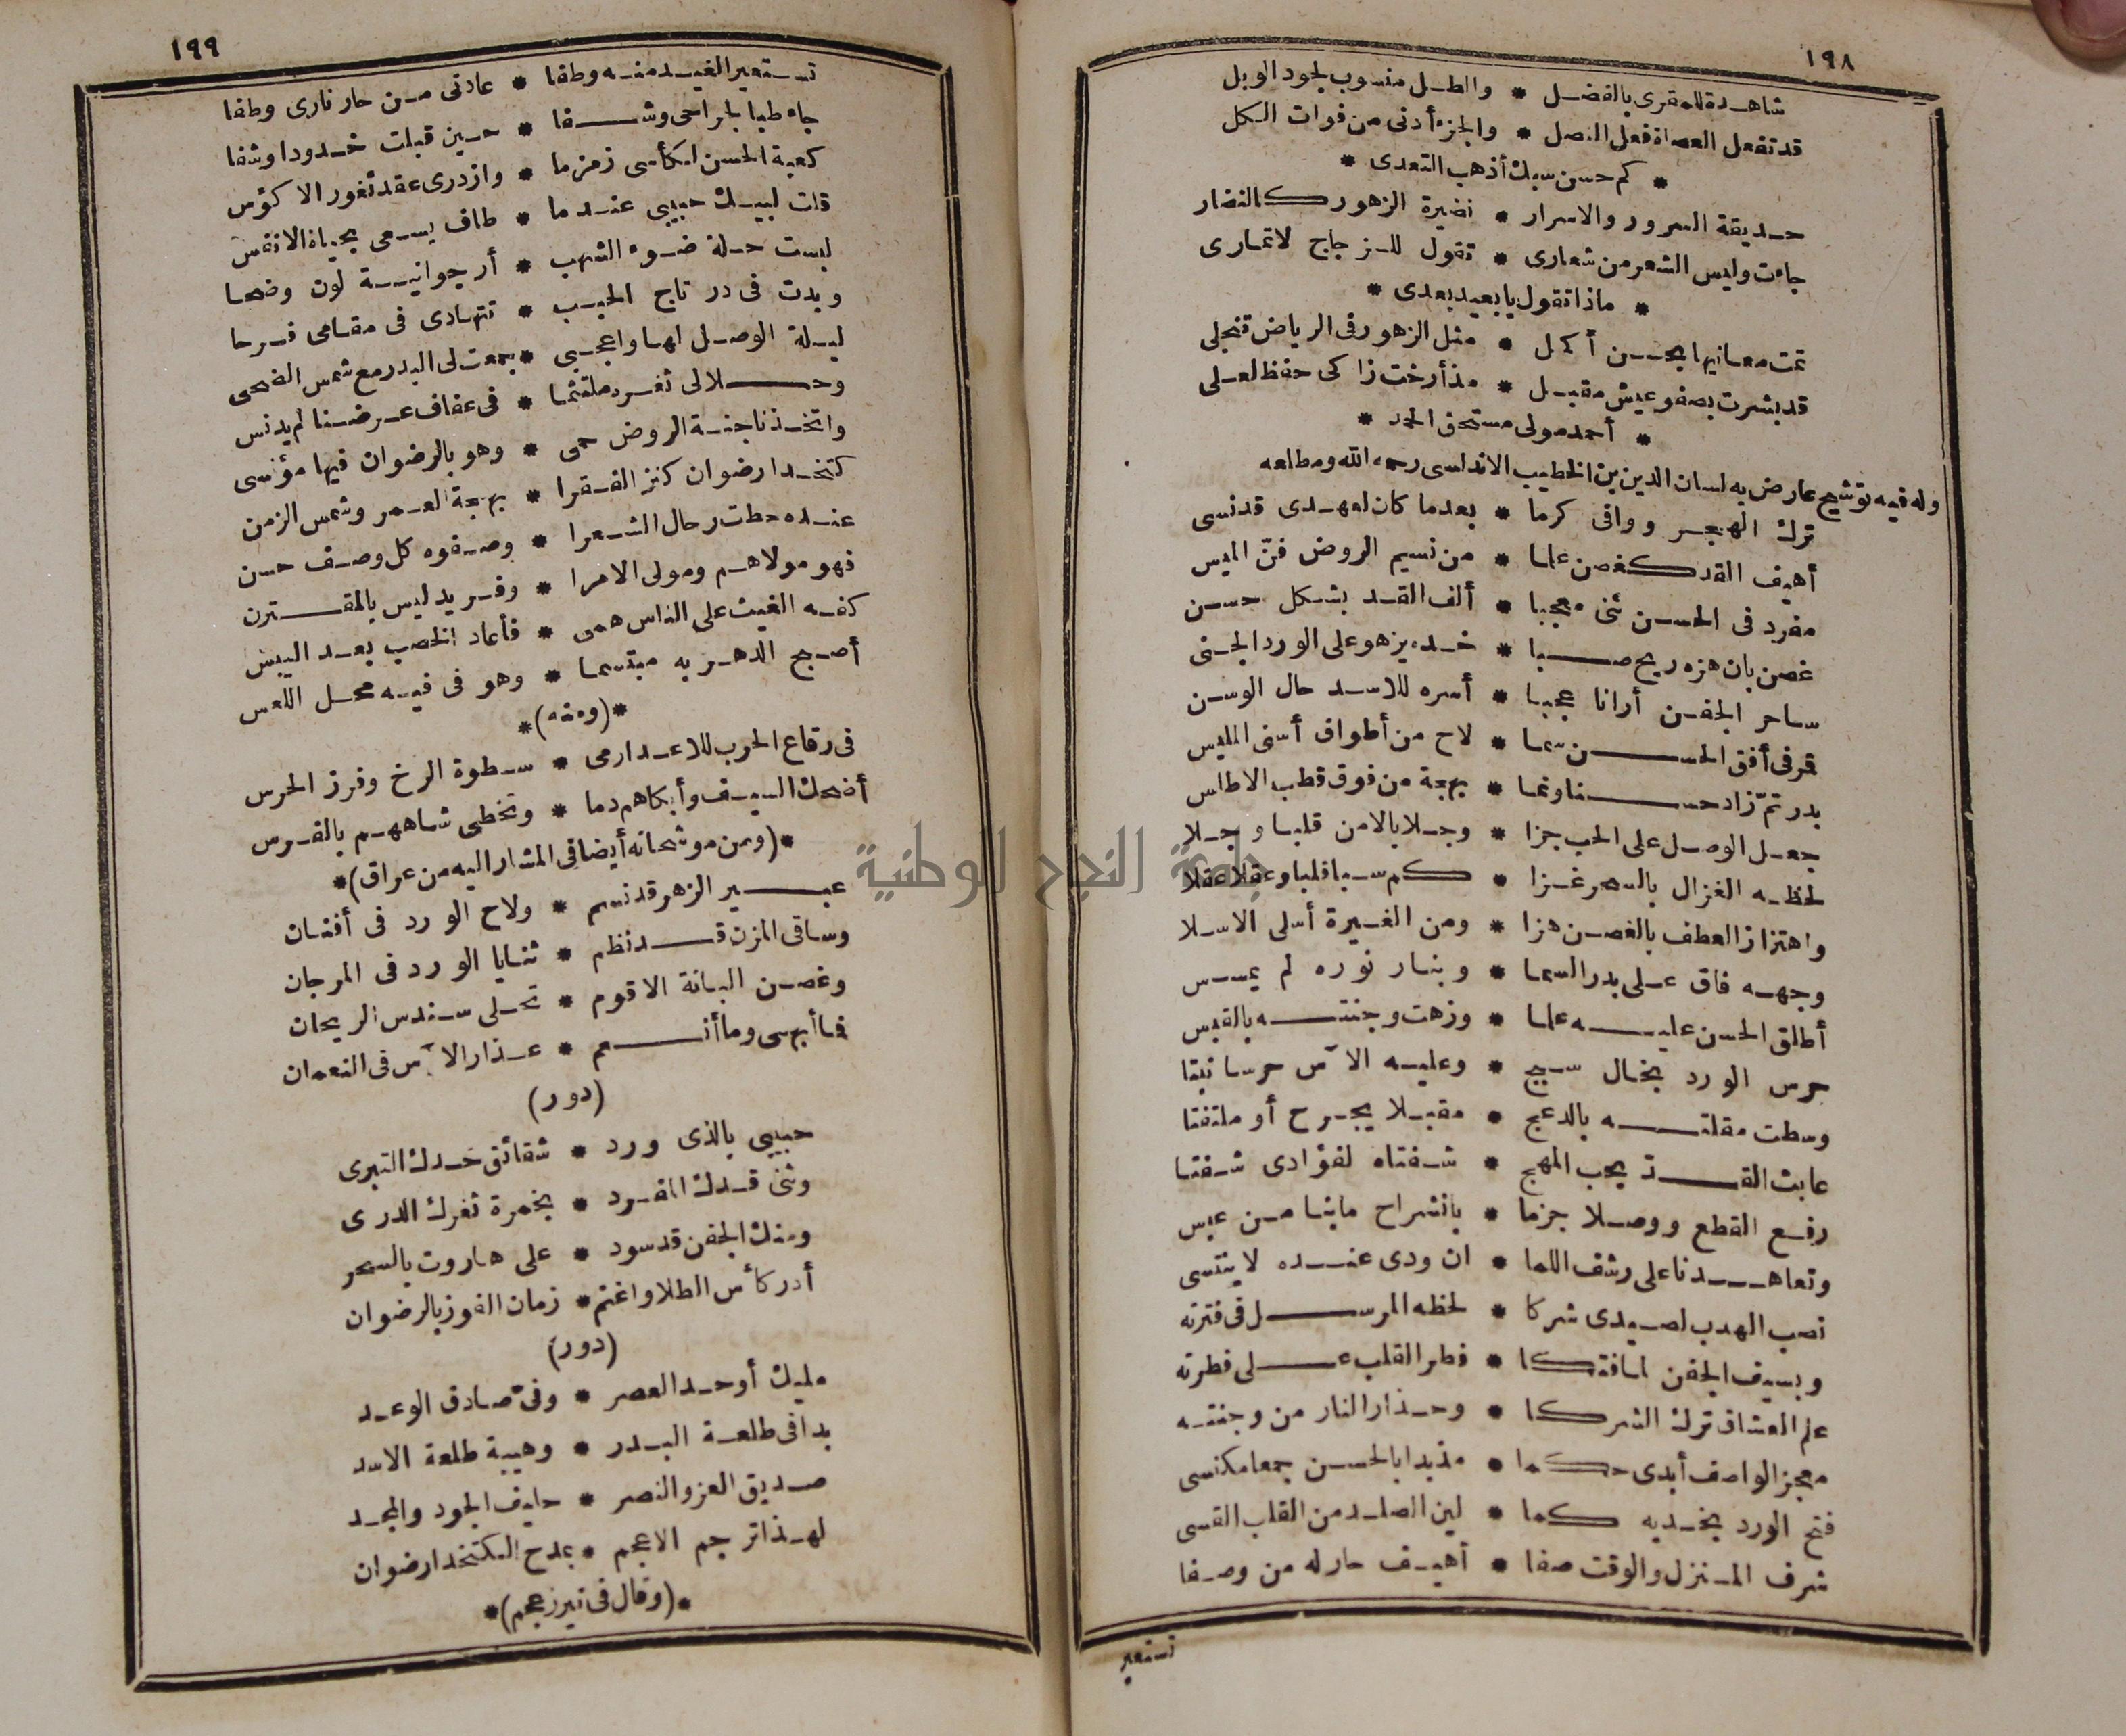 ١٩٨
شاهدة للمقرى بالفضل * والطل منسوب لجود الوبل
قد تفعل العصاة فعل النصل * والجزء أدنى من فوات الكل
* كم حسن سبك أذهب التعدى *
حديقة السرور والاسرار * نضيرة الزهور كالنضار
جاءت وليس الشعر من شعارى * تقول للزجاج لا تمارى
* ماذا تقول يا بعيد بعدى *
تمت معانيها بحسن أكمل * مثل الزهور فى الرياض تنجلى
قد بشرت بصفو عيش مقبل * مذ أرخت زاكى حفظ لعلى
* أحمد مولى مستحق الحمد *
وله فيه توشيح عارض به لسان الدين بن الخطيب الاندلسى رحمه الله ومطلعه
ترك الهجر ووافى كرما * بعدما كان لعهدى قد نسى
أهيف القد كغصن علما * من نسيم الروض فنّ الميس
مفرد فى الحسن ثنى معجبا * ألف القد بشكل حسن
غصن بان هزه ريح صبا * خده يزهو على الورد الجنى
ساحر الجفن أرانا عجبا * أسره للاسد حال الوسن
قمر فى أفق الحسن سما * لاح من أطواق أسنى الملبس
بدر تمّ زاد حسنا ونما * بهجة من فوق قطب الاطلس
جعل الوصل على الحب جزا * وجلا بالامن قلبا وجلا
لحظه الغزال بالسحر غزا * كم سبا قلبا وعقلا عقلا
واهتزاز العطف بالغصن هزا * ومن الغيرة أسلى الاسلا
وجهه فاق على بدر السما * وبنار نوره لم يمسس
أطلق الحسن عليه علما * وزهت وجنته بالقبس
حرس الورد بخال سبج * وعليه الآس حرسا نبتا
وسطت مقلته بالدعج * مقبلا يجرح أو ملتفتا
عابث القد يحب المهج * شفتاه لفؤادى شفتا
رفع القطع ووصلا جزما * بانشراح ما بنا من عبس
وتعاهدنا على رشف اللما * ان ودى عنده لا ينتسى
نصب الهدب لصيدى شركا * لحظه المرسل فى فترته
وبسيف الجفن لما فتكا * فطر القلب على فطرته
علم العشاق ترك الشركا * وحذار النار من وجنته
معجز الواصف أبدى حكما * مذ بدا بالحسن جمعا مكتسى
فتح الورد بخديه كما * لين الصلد من القلب القسى
شرف المنزل والوقت صفا * أهيف حار له من وصفا
تستعير
١٩٩
تستعير الغيد منه وطفا * عادنى من حار نارى وطفا
جاء طبا لجراحى وشفا * حين قبلت خدودا وشفا
كعبة الحسن لكأسى زمزما * وازدرى عقد ثغور الاكؤس
قلت لبيك حبيبى عندما * طاف يسعى بحياة الانفس
لبست حلة ضوء الشهب * أرجوانية لون وضحا
وبدت فى در تاج الحبب * تتهادى فى مقامى فرحا
ليلة الوصل لها واعجبى * جمعت لى البدر مع شمس الضحى
وحلا لى ثغره ملتثما * فى عفاف عرضنا لم يدنس
واتخذنا جنة الروض حمى * وهو بالرضوان فيها مؤنسى
كتخدا رضوان كنز الفقرا * بهجة العصر وشمس الزمن
عنده حطت رحال الشعرا * وصفوه كل وصف حسن
فهو مولاهم ومولى الامرا * وفريد ليس بالمقترن
كفه الغيث على الناس همى * فأعاد الخصب بعد اليبس
أصبح الدهر به مبتسما * وهو فى فيه محل اللعس
*(ومنه)*
فى رقاع الحرب للاعدا رمى * سطوة الرخ وفرز الحرس
أضحك السيف وأبكاهم دما * وتخطى شاههم بالفرس
*(ومن موشحاته أيضا فى المشار اليه من عراق)*
عبير الزهر قد نسم * ولاح الورد فى أفنان
وساقى المزن قد نظم * ثنايا الورد فى المرجان
وغصن البانة الاقوم * تحلى سندس الريحان
فما أبهى وما أنعم * عذار الآس فى النعمان
(دور)
حبيبى بالذى ورد * شقائق خدك التبرى
وثنى قدك المفرد * بخمرة ثغرك الدرى
ومنك الجفن قد سود * على هاروت بالسحر
أدر كأس الطلا واغنم * زمان الفوز بالرضوان
(دور)
مليك أوحد العصر * وفىّ صادق الوعد
بدا فى طلعة البدر * وهيبة طلعة الاسد
صديق العز والنصر * حليف الجود والمجد
لهذا ترجم الاعجم * بمدح الكتخدا رضوان
*(وقال فى نيرز عجم)*
جامعة النجاح الوطنية